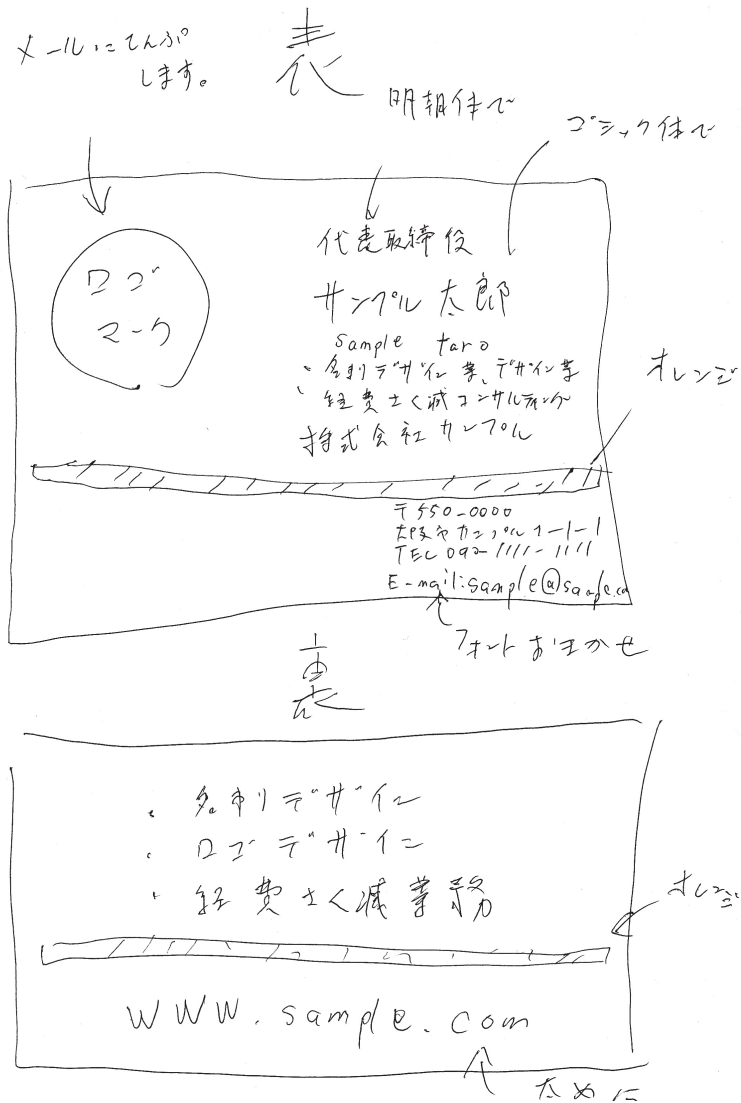 メールにてんぷ
します。
表
明朝体で
ゴシック体で
ロゴ
マーク
代表取締役
サンプル 太郎
sample taro
・名刺デザイン業、デザイン業
・経費さく減コンサルティング
株式会社サンプル
オレンジ
〒550-0000
大阪市サンプル1-1-1
TEL 092-1111-1111
E-mail:sample@sample.co
フォントおまかせ
裏
・名刺デザイン
・ロゴデザイン
・経費さく減業務
オレンジ
WWW.sample.com